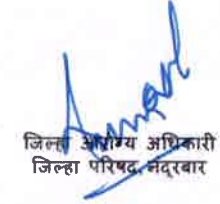 जिल्हा आरोग्य अधिकारी
जिल्हा परिषद, नंदुरबार